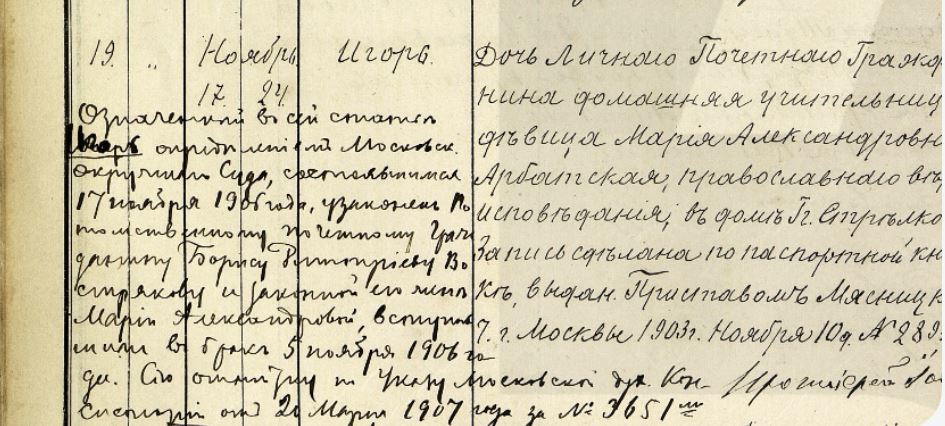 19. „ Ноябрь. Игорь.
17. 24.
Означенный въ сей статьѣ
Игорь опредѣленіемъ Московск.
Окружнаго Суда, состоявшимся
17 ноября 1906 года, узаконенъ По
томственному почетному Граж
данину Борису Димитріеву Во
стрякову и законной его женѣ
Маріи Александровой, вступив
шими въ бракъ 5 ноября 1906 го
да. Сію отмѣтку по Указу Московской дух. Кон-
систоріи отъ 20 Марта 1907 года за № 3651 м
Дочь Личнаго Почетнаго Гражда
нина домашняя учительниц
дѣвица Марія Александровн
Арбатская, православнаго вѣ
исповѣданія; въ домѣ Гг. Стрѣлко
Запись сдѣлана по паспортной кн
кѣ, выдан. Приставомъ Мясницк
7. г. Москвы 1903 г. Ноября 10 д. № 289
Протоіерей